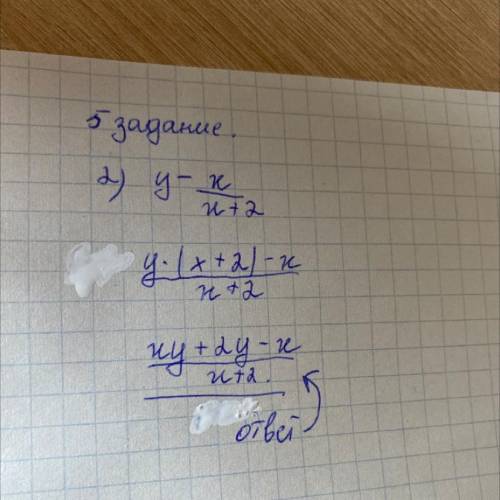 5 задание.
2) y - x/x+2
y·(x+2)-x/x+2
xy+2y-x/x+2.
ответ